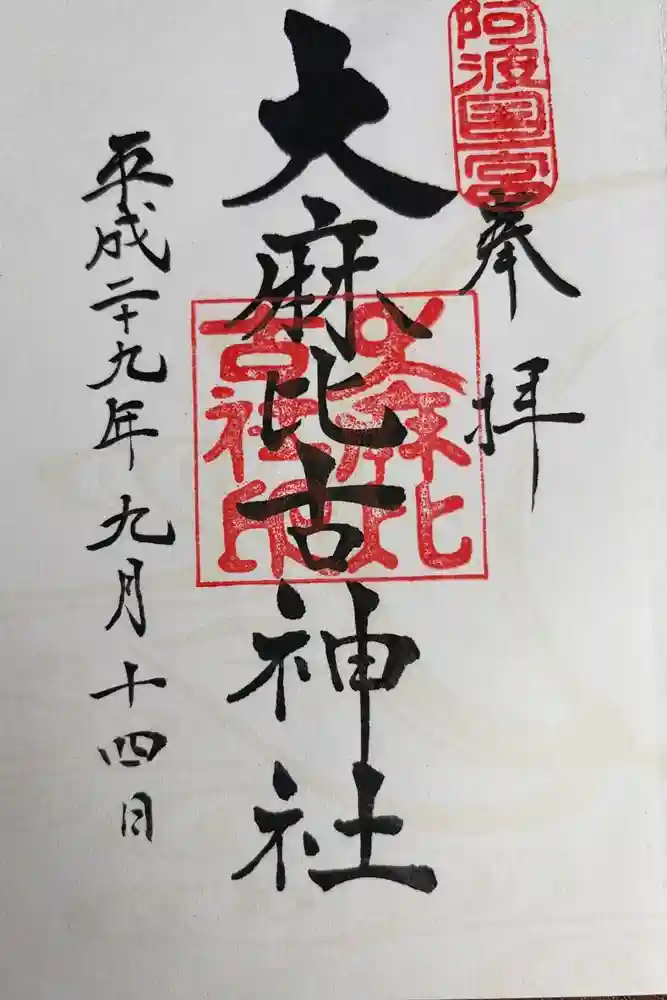 阿波国一宮
奉拝
大麻比古神社
大麻比
古社印
平成二十九年九月十四日